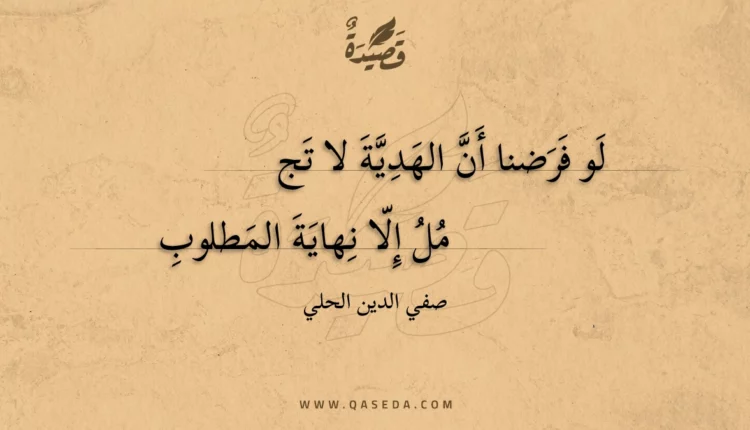 قَصِيدَةٌ
لَو فَرَضنا أَنَّ الهَدِيَّةَ لا تَج
مُلُ إِلّا نِهايَةَ المَطلوبِ
صفي الدين الحلي
WWW.QASEDA.COM